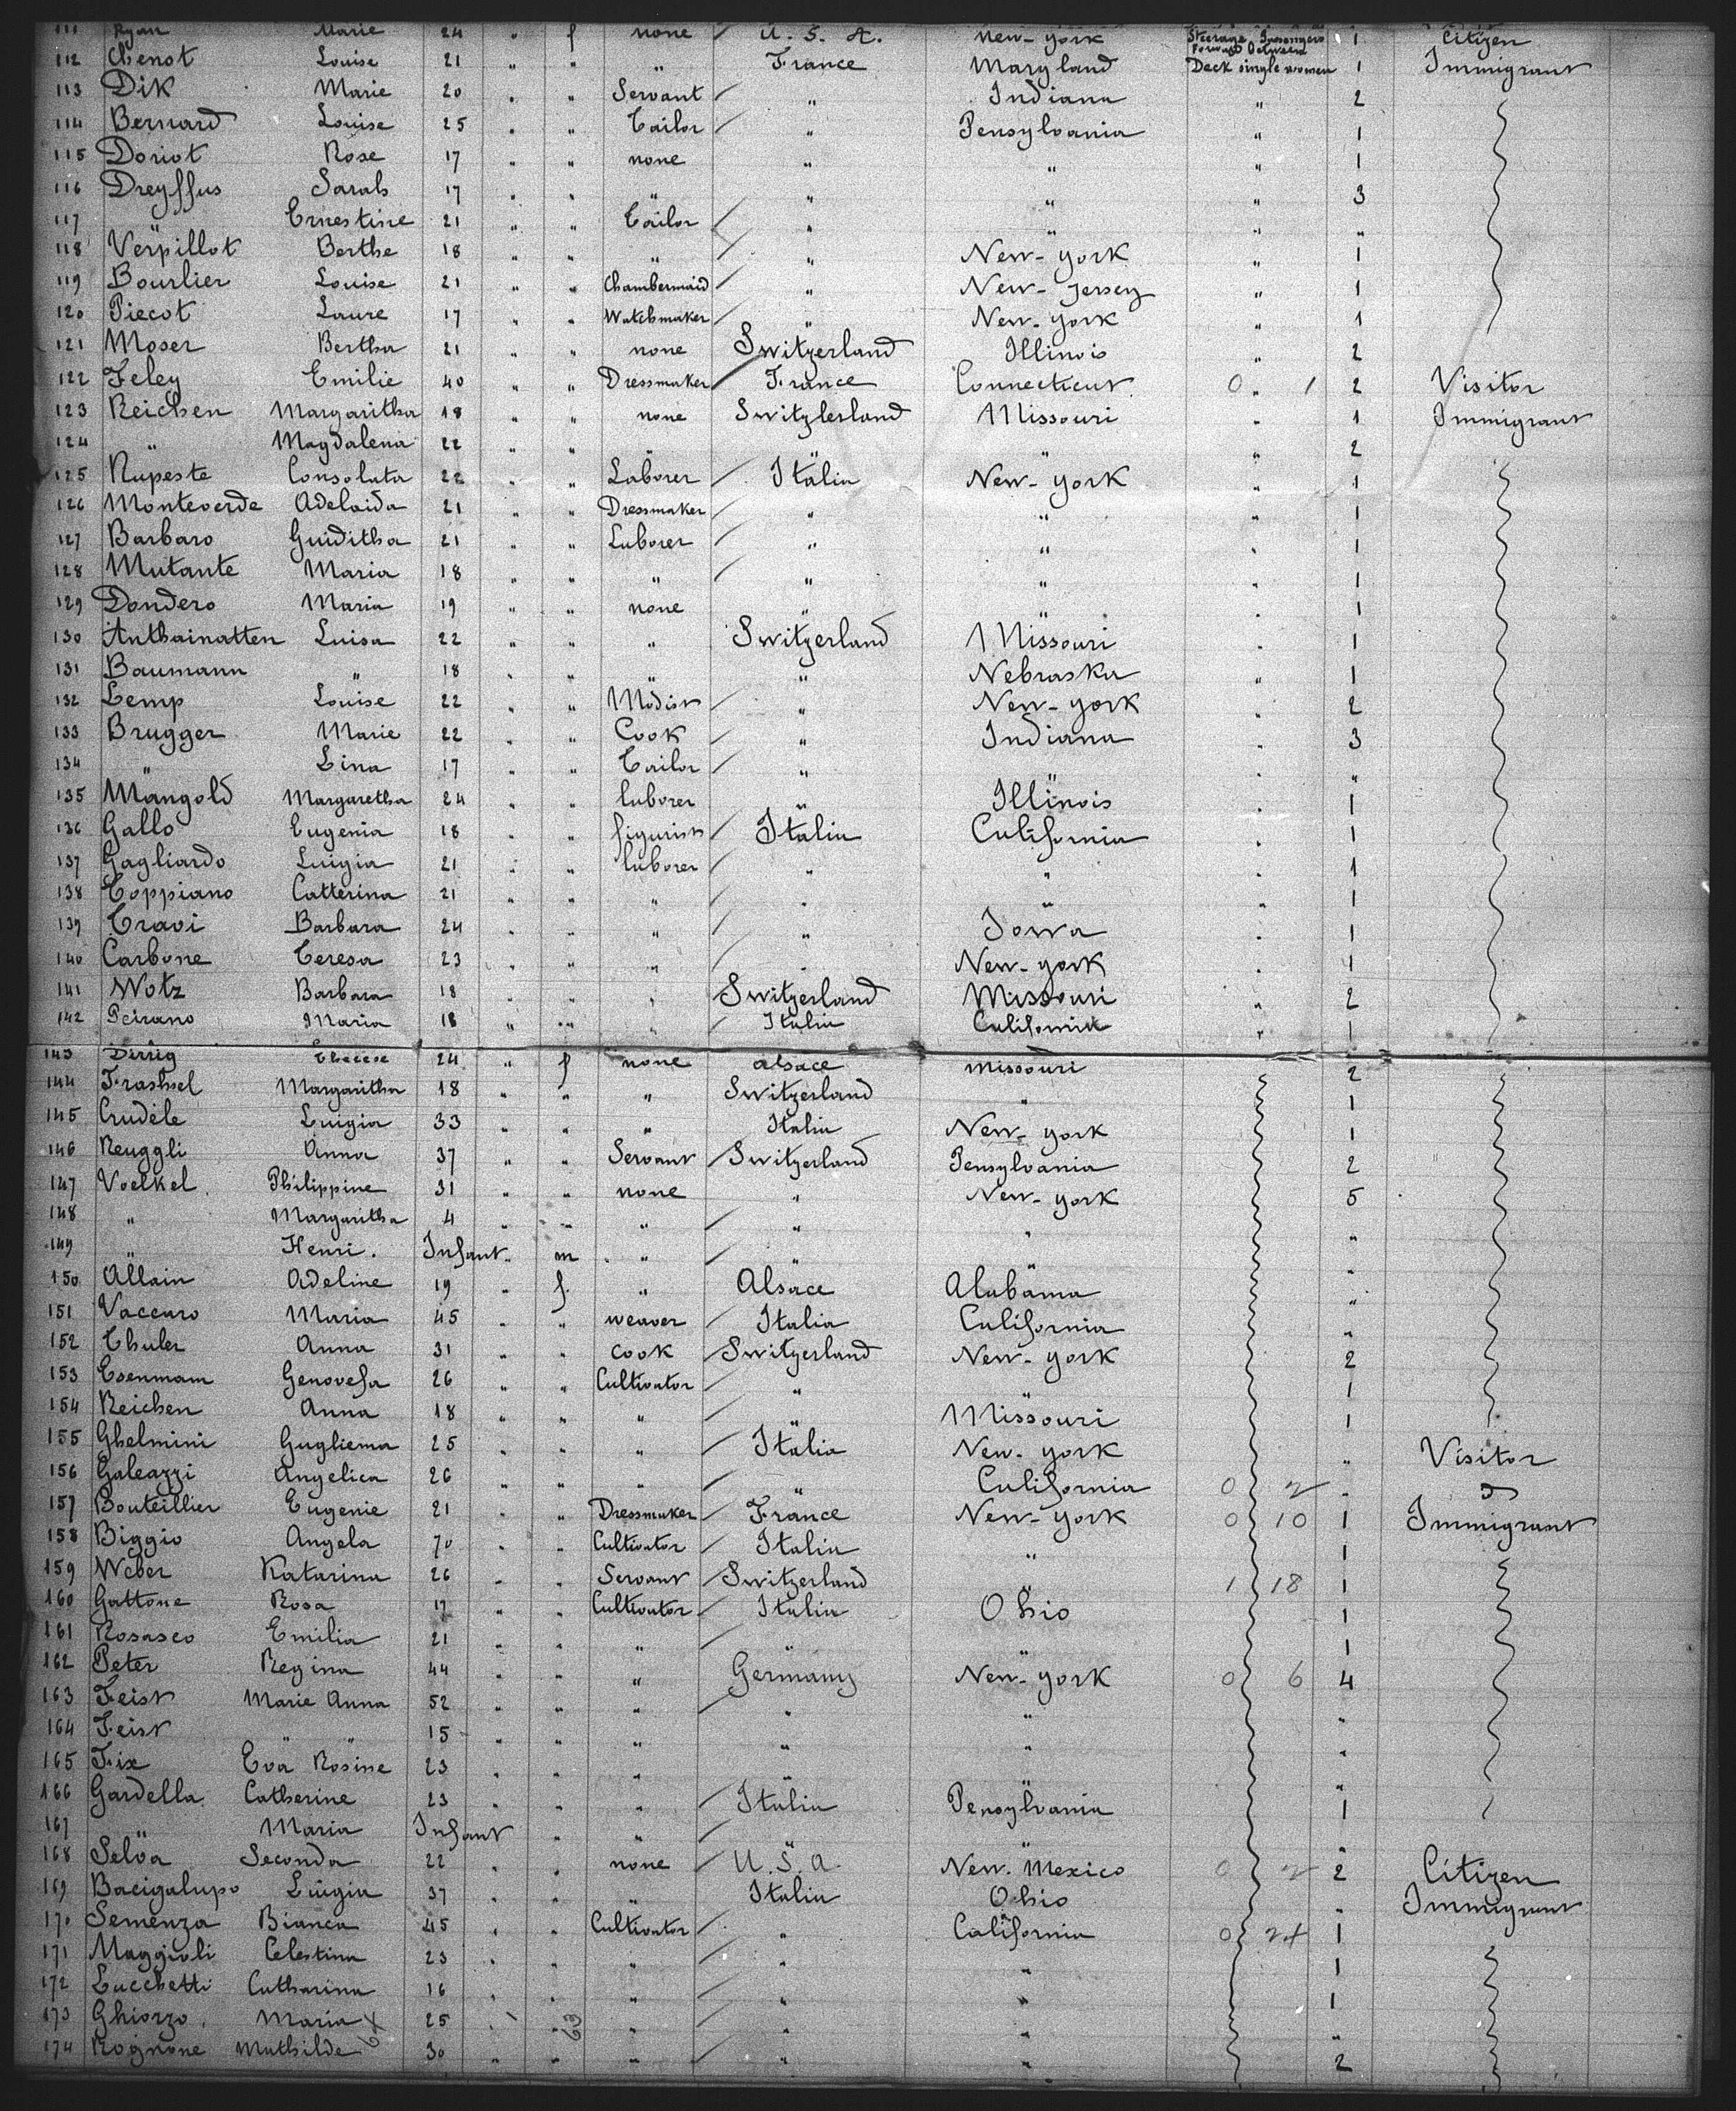 111 Ryan Marie 24 " f none U. S. A. New-york Steerage Passengers Forward Between 1 Citizen
112 Chenot Louise 21 " " " France Maryland Deck single women 1 Immigrant
113 Dik Marie 20 " " Servant " Indiana " 2
114 Bernard Louise 25 " " Tailor " Pensylvania " 1
115 Doriot Rose 17 " " none " " " 1
116 Dreyffus Sarah 17 " " " " " " 3
117 " Ernestine 21 " " Tailor " " " "
118 Verpillot Berthe 18 " " " " New-york " 1
119 Bourlier Louise 21 " " Chambermaid " New-Jersey " 1
120 Piecot Laure 17 " " Watchmaker " New-york " 1
121 Moser Bertha 21 " " none Switzerland Illinois " 2
122 Feley Emilie 40 " " Dressmaker France Connecticut 0 " 1 2 Visitor
123 Reichen Margaritha 18 " " none Switzlerland Missouri " 1 Immigrant
124 " Magdalena 22 " " " " " " 2
125 Rupeste Consolata 22 " " Laborer Italia New-york " 1
126 Monteverde Adelaida 21 " " Dressmaker " " " 1
127 Barbaro Guiditha 21 " " Laborer " " " 1
128 Mutante Maria 18 " " " " " " 1
129 Dondero Maria 19 " " none " " " 1
130 Anthainatten Luisa 22 " " " Switzerland Missouri " 1
131 Baumann " 18 " " " " Nebraska " 1
132 Lemp Louise 22 " " Modist " New-york " 2
133 Brugger Marie 22 " " Cook " Indiana " 3
134 " Lina 17 " " Tailor " " " "
135 Mangold Margaretha 24 " " laborer " Illinois " 1
136 Gallo Eugenia 18 " " figurist Italia California " 1
137 Gagliardo Luigia 21 " " laborer " " " 1
138 Coppiano Catterina 21 " " " " " " 1
139 Travi Barbara 24 " " " " Iowa " 1
140 Carbone Teresa 23 " " " " New-york " 1
141 Wotz Barbara 18 " " " Switzerland Missouri " 2
142 Peirano Maria 18 " " " Italia California " 1
143 Dirrig Therese 24 " f none alsace missouri 2
144 Frashsel Margaritha 18 " " " Switzerland " 1
145 Crudele Luigia 33 " " " Italia New-york 1
146 Reuggli Anna 37 " " Servant Switzerland Pensylvania 2
147 Voelkel Philippine 31 " " none " New-york 5
148 " Margaritha 4 " " " " " "
149 " Henri. Infant " m " " " "
150 Allain Adeline 19 " f. " Alsace Alabama "
151 Vaccaro Maria 45 " " weaver Italia California "
152 Thuler Anna 31 " " cook Switzerland New-york 2
153 Esenmam Genovefa 26 " " Cultivator " " 1
154 Reichen Anna 18 " " " " Missouri 1
155 Ghelmini Gugliema 25 " " " Italia New-york " Visitor
156 Galeazzi Angelica 26 " " " " California 0 2 " "
157 Bouteillier Eugenie 21 " " Dressmaker France New-york 0 10 1 Immigrant
158 Biggio Angela 70 " " Cultivator Italia " 1
159 Weber Katarina 26 " " Servant Switzerland " 1 18 1
160 Gattone Rosa 17 " " Cultivator Italia Ohio 1
161 Rosasco Emilia 21 " " " " " 1
162 Peter Regina 44 " " " Germany New-york 0 6 4
163 Feist Marie Anna 52 " " " " " "
164 Feist " " 15 " " " " " "
165 Fix Eva Rosine 23 " " " " " "
166 Gardella Catherine 23 " " " Italia Pensylvania 1
167 " Maria Infant " " " " "
168 Selva Seconda 22 " " none U. S. a. New-Mexico 0 2 2 Citizen
169 Bacigalupo Luigia 37 " " " Italia Ohio " Immigrant
170 Semenza Bianca 45 " " Cultivator " California 0 24 1
171 Maggioli Celestina 23 " " " " " 1
172 Lucchetti Catharina 16 " " " " " 1
173 Ghiorzo Maria 25 " " " " " "
174 Rognone Mathilde 30 " " " " " 2
63